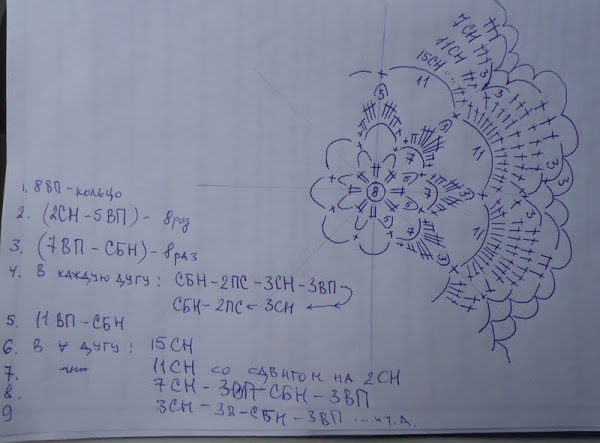 1. 8ВП - кольцо
2. (2СН - 5ВП) - 8раз
3. (7ВП - СБН) - 8раз
4. В каждую дугу: СБН - 2ПС - 3СН - 3ВП -
СБН - 2ПС - 3СН
5. 11ВП - СБН
6. В дугу: 15СН
7. 11СН со сдвигом на 2СН
8. 7СН - 3ВП - СБН - 3ВП
9 3СН - 3В - СБН - 3ВП ... и т.д.
7СН
11СН
15СН ...
3
11
3
3
5
7
11
8
5
7
3
3
5
3
11
3